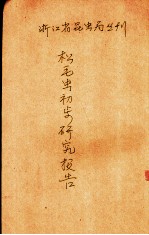 浙江省昆虫局丛刊
松毛虫初步研究报告